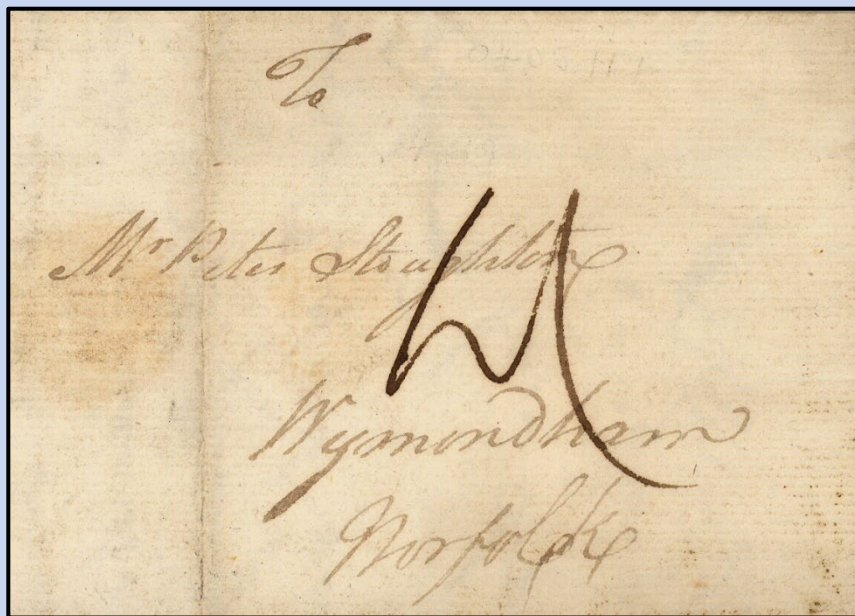 To
Mr Peter Stoughton
4
Wymondham
Norfolk